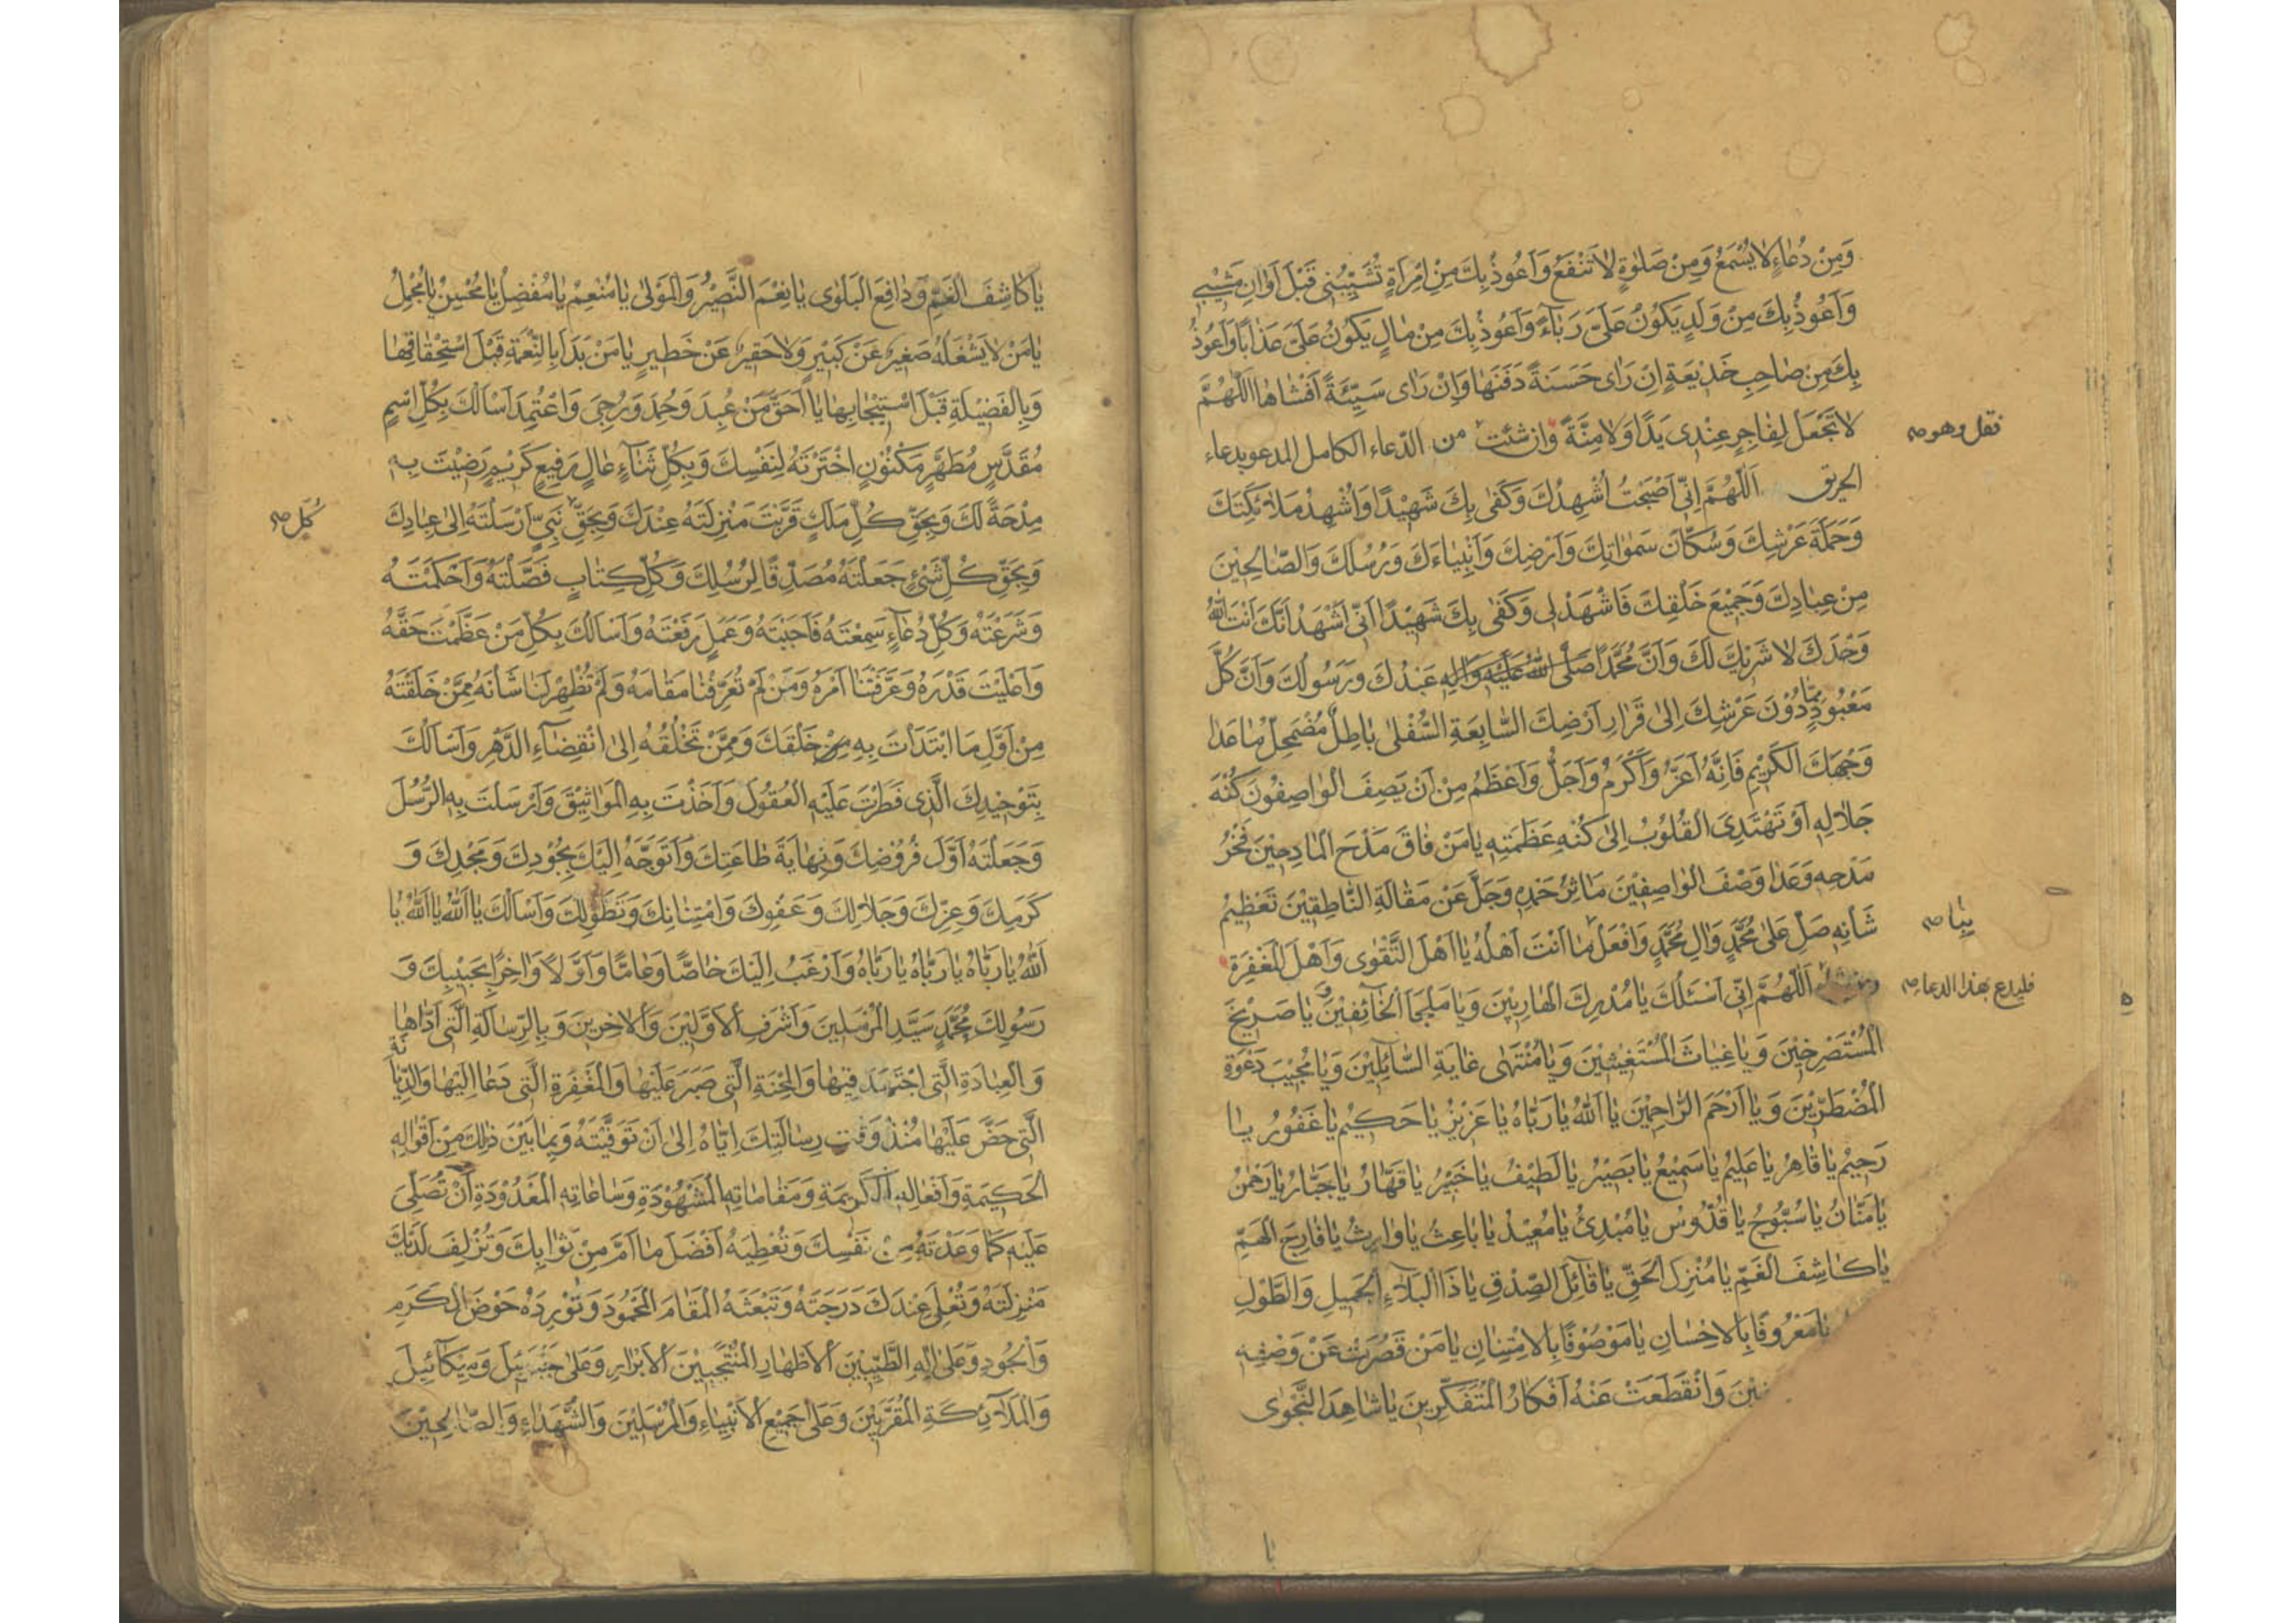 وَمِنْ دُعَاءٍ لَا يُسْمَعُ وَمِنْ صَلٰوةٍ لَا تَنْفَعُ وَاَعُوذُ بِكَ مِنِ امْرَاَةٍ تُشَيِّبُنِى قَبْلَ اَوَانِ مَشِيْبِى
وَاَعُوذُ بِكَ مِنْ وَلَدٍ يَكُونُ عَلَىَّ رَبَّاءً وَاَعُوذُ بِكَ مِنْ مَالٍ يَكُونُ عَلَىَّ عَذَابًا وَاَعُوذُ
بِكَ مِنْ صَاحِبِ خَدِيْعَةٍ اِنْ رَاٰى حَسَنَةً دَفَنَهَا وَاِنْ رَاٰى سَيِّئَةً اَفْشَاهَا اَللّٰهُمَّ
لَا تَجْعَلْ لِفَاجِرٍ عِنْدِى يَدًا وَلَا مِنَّةً وان شئت من الدّعاء الكامل المدعو بدعاء
نقل وهو صح
الحريق اَللّٰهُمَّ اِنِّى اَصْبَحْتُ اُشْهِدُكَ وَكَفٰى بِكَ شَهِيْدًا وَاُشْهِدُ مَلَائِكَتَكَ
وَحَمَلَةَ عَرْشِكَ وَسُكَّانَ سَمٰوَاتِكَ وَاَرْضِكَ وَاَنْبِيَاءَكَ وَرُسُلَكَ وَالصَّالِحِيْنَ
مِنْ عِبَادِكَ وَجَمِيْعَ خَلْقِكَ فَاشْهَدْ لِى وَكَفٰى بِكَ شَهِيْدًا اَنِّى اَشْهَدُ اَنَّكَ اَنْتَ اللّٰهُ
وَحْدَكَ لَا شَرِيْكَ لَكَ وَاَنَّ مُحَمَّدًا صَلَّى اللّٰهُ عَلَيْهِ وَاٰلِهِ عَبْدُكَ وَرَسُولُكَ وَاَنَّ كُلَّ
مَعْبُودٍ مِمَّا دُوْنَ عَرْشِكَ اِلٰى قَرَارِ اَرْضِكَ السَّابِعَةِ السُّفْلٰى بَاطِلٌ مُضْمَحِلٌّ مَا عَدَا
وَجْهَكَ الْكَرِيْمِ فَاِنَّهُ اَعَزُّ وَاَكْرَمُ وَاَجَلُّ وَاَعْظَمُ مِنْ اَنْ يَصِفَ الْوَاصِفُونَ كُنْهَ
جَلَالِهِ اَوْ تَهْتَدِىَ الْقُلُوْبُ اِلٰى كُنْهِ عَظَمَتِهِ يَا مَنْ فَاقَ مَدْحَ الْمَادِحِيْنَ فَخْرُ
مَدْحِهِ وَعَدَا وَصْفَ الْوَاصِفِيْنَ مَاثِرُ حَمْدِهِ وَجَلَّ عَنْ مَقَالَةِ النَّاطِقِيْنَ تَعْظِيْمُ
شَأْنِهِ صَلِّ عَلٰى مُحَمَّدٍ وَاٰلِ مُحَمَّدٍ وَافْعَلْ مَا اَنْتَ اَهْلُهُ يَا اَهْلَ التَّقْوٰى وَاَهْلَ الْمَغْفِرَةِ
بنا صح
اَللّٰهُمَّ اِنِّى اَسْئَلُكَ يَا مُدْرِكَ الْهَارِبِيْنَ وَيَا مَلْجَاَ الْخَائِفِيْنَ وَ يَا صَرِيْخَ
فليدع بهذا الدعاء صح
الْمُسْتَصْرِخِيْنَ وَيَا غِيَاثَ الْمُسْتَغِيْثِيْنَ وَيَا مُنْتَهٰى غَايَةِ السَّائِلِيْنَ وَيَا مُجِيْبَ دَعْوَةِ
الْمُضْطَرِّيْنَ وَيَا اَرْحَمَ الرَّاحِمِيْنَ يَا اَللّٰهُ يَا رَبَّاهُ يَا عَزِيْزُ يَا حَكِيْمُ يَا غَفُورُ يَا
رَحِيْمُ يَا قَاهِرُ يَا عَلِيْمُ يَا سَمِيْعُ يَا بَصِيْرُ يَا لَطِيْفُ يَا خَبِيْرُ يَا قَهَّارُ يَا جَبَّارُ يَا رَحْمٰنُ
يَا مَنَّانُ يَا سُبُّوحُ يَا قُدُّوسُ يَا مُبْدِئُ يَا مُعِيْدُ يَا بَاعِثُ يَا وَارِثُ يَا فَارِجَ الْهَمِّ
يَا كَاشِفَ الْغَمِّ يَا مُنْزِلَ الْحَقِّ يَا قَائِلَ الصِّدْقِ يَا ذَا الْبَلَاءِ الْجَمِيلِ وَالطَّوْلِ
يَا مَعْرُوفًا بِالْاِحْسَانِ يَا مَوْصُوْفًا بِالْاِمْتِنَانِ يَا مَنْ قَصُرَتْ عَنْ وَصْفِهِ
وَانْقَطَعَتْ عَنْهُ اَفْكَارُ الْمُتَفَكِّرِينَ يَا شَاهِدَ النَّجْوٰى
يا
يَا كَاشِفَ الْغَمِّ وَدَافِعَ الْبَلْوٰى يَا نِعْمَ النَّصِيْرُ وَالْمَوْلٰى يَا مُنْعِمُ يَا مُفْضِلُ يَا مُحْسِنُ يَا مُجْمِلُ
يَا مَنْ لَا يَشْغَلُهُ صَغِيْرٌ عَنْ كَبِيْرٍ وَلَا حَقِيْرٌ عَنْ خَطِيْرٍ يَا مَنْ بَدَاَ بِالنِّعْمَةِ قَبْلَ اسْتِحْقَاقِهَا
وَبِالْفَضِيْلَةِ قَبْلَ اسْتِيْجَابِهَا يَا اَحَقَّ مَنْ عُبِدَ وَحُمِدَ وَرُجِىَ وَاعْتُمِدَ اَسْاَلُكَ بِكُلِّ اسْمٍ
مُقَدَّسٍ مُطَهَّرٍ مَكْنُوْنٍ اخْتَرْتَهُ لِنَفْسِكَ وَبِكُلِّ ثَنَاءٍ عَالٍ رَفِيعٍ كَرِيْمٍ رَضِيْتَ بِهِ
مِدْحَةً لَكَ وَبِحَقِّ كُلِّ مَلَكٍ قَرَّبْتَ مَنْزِلَتَهُ عِنْدَكَ وَبِحَقِّ نَبِىٍّ اَرْسَلْتَهُ اِلٰى عِبَادِكَ
كُلِّ صح
وَبِحَقِّ كُلِّ شَىْءٍ جَعَلْتَهُ مُصَدِّقًا لِرُسُلِكَ وَكُلِّ كِتَابٍ فَصَّلْتَهُ وَاَحْكَمْتَهُ
وَشَرَعْتَهُ وَكُلِّ دُعَاءٍ سَمِعْتَهُ فَاَجَبْتَهُ وَعَمَلٍ رَفَعْتَهُ وَاَسْاَلُكَ بِكُلِّ مَنْ عَظَّمْتَ حَقَّهُ
وَاَعْلَيْتَ قَدْرَهُ وَعَرَّفْتَنَا اَمْرَهُ وَمَنْ لَمْ تُعَرِّفْنَا مَقَامَهُ وَلَمْ تُظْهِرْ لَنَا شَأْنَهُ مِمَّنْ خَلَقْتَهُ
مِنْ اَوَّلِ مَا ابْتَدَأْتَ بِهِ مِنْ خَلْقِكَ وَمِمَّنْ تَخْلُقُهُ اِلٰى انْقِضَاءِ الدَّهْرِ وَاَسْاَلُكَ
بِتَوْحِيْدِكَ الَّذِى فَطَرْتَ عَلَيْهِ الْعُقُولَ وَاَخَذْتَ بِهِ الْمَوَاثِيْقَ وَاَرْسَلْتَ بِهِ الرُّسُلَ
وَجَعَلْتَهُ اَوَّلَ فُرُوْضِكَ وَنِهَايَةَ طَاعَتِكَ وَاَتَوَجَّهُ اِلَيْكَ بِجُودِكَ وَمَجْدِكَ وَ
كَرَمِكَ وَعِزِّكَ وَجَلَالِكَ وَعَفْوِكَ وَامْتِنَانِكَ وَتَطَوُّلِكَ وَاَسْاَلُكَ يَا اَللّٰهُ يَا اَللّٰهُ يَا
اَللّٰهُ يَا رَبَّاهُ يَا رَبَّاهُ يَا رَبَّاهُ وَاَرْغَبُ اِلَيْكَ خَاصًّا وَعَامًّا وَاَوَّلًا وَاٰخِرًا بِحَبِيْبِكَ وَ
رَسُولِكَ مُحَمَّدٍ سَيِّدِ الْمُرْسَلِيْنَ وَاَشْرَفِ الْاَوَّلِيْنَ وَالْاٰخِرِيْنَ وَبِالرِّسَالَةِ الَّتِى اَدَّاهَا
وَالْعِبَادَةِ الَّتِى اجْتَهَدَ فِيْهَا وَالْمِحْنَةِ الَّتِى صَبَرَ عَلَيْهَا وَالْمَغْفِرَةِ الَّتِى دَعَا اِلَيْهَا وَالدِّيَانَةِ
الَّتِى حَضَّ عَلَيْهَا مُنْذُ وَقْتِ رِسَالَتِكَ اِيَّاهُ اِلٰى اَنْ تَوَفَّيْتَهُ وَبِمَا بَيْنَ ذٰلِكَ مِنْ اَقْوَالِهِ
الْحَكِيْمَةِ وَاَفْعَالِهِ الْكَرِيْمَةِ وَمَقَامَاتِهِ الْمَشْهُوْدَةِ وَسَاعَاتِهِ الْمَعْدُوْدَةِ اَنْ تُصَلِّىَ
عَلَيْهِ كَمَا وَعَدْتَهُ مِنْ نَفْسِكَ وَتُعْطِيَهُ اَفْضَلَ مَا اَمَّرَ مِنْ ثَوَابِكَ وَتُزْلِفَ لَدَيْكَ
مَنْزِلَتَهُ وَتُعْلِىَ عِنْدَكَ دَرَجَتَهُ وَتَبْعَثَهُ الْمَقَامَ الْمَحْمُودَ وَتُوْرِدَهُ حَوْضَ الْكَرَمِ
وَالْجُودِ وَعَلٰى اٰلِهِ الطَّيِّبِيْنَ الْاَطْهَارِ الْمُنْتَجَبِيْنَ الْاَبْرَارِ وَعَلٰى جَبْرَئِيلَ وَمِيْكَائِيْلَ
وَالْمَلَائِكَةِ الْمُقَرَّبِيْنَ وَعَلٰى جَمِيْعِ الْاَنْبِيَاءِ وَالْمُرْسَلِيْنَ وَالشُّهَدَاءِ وَالصَّالِحِيْنَ